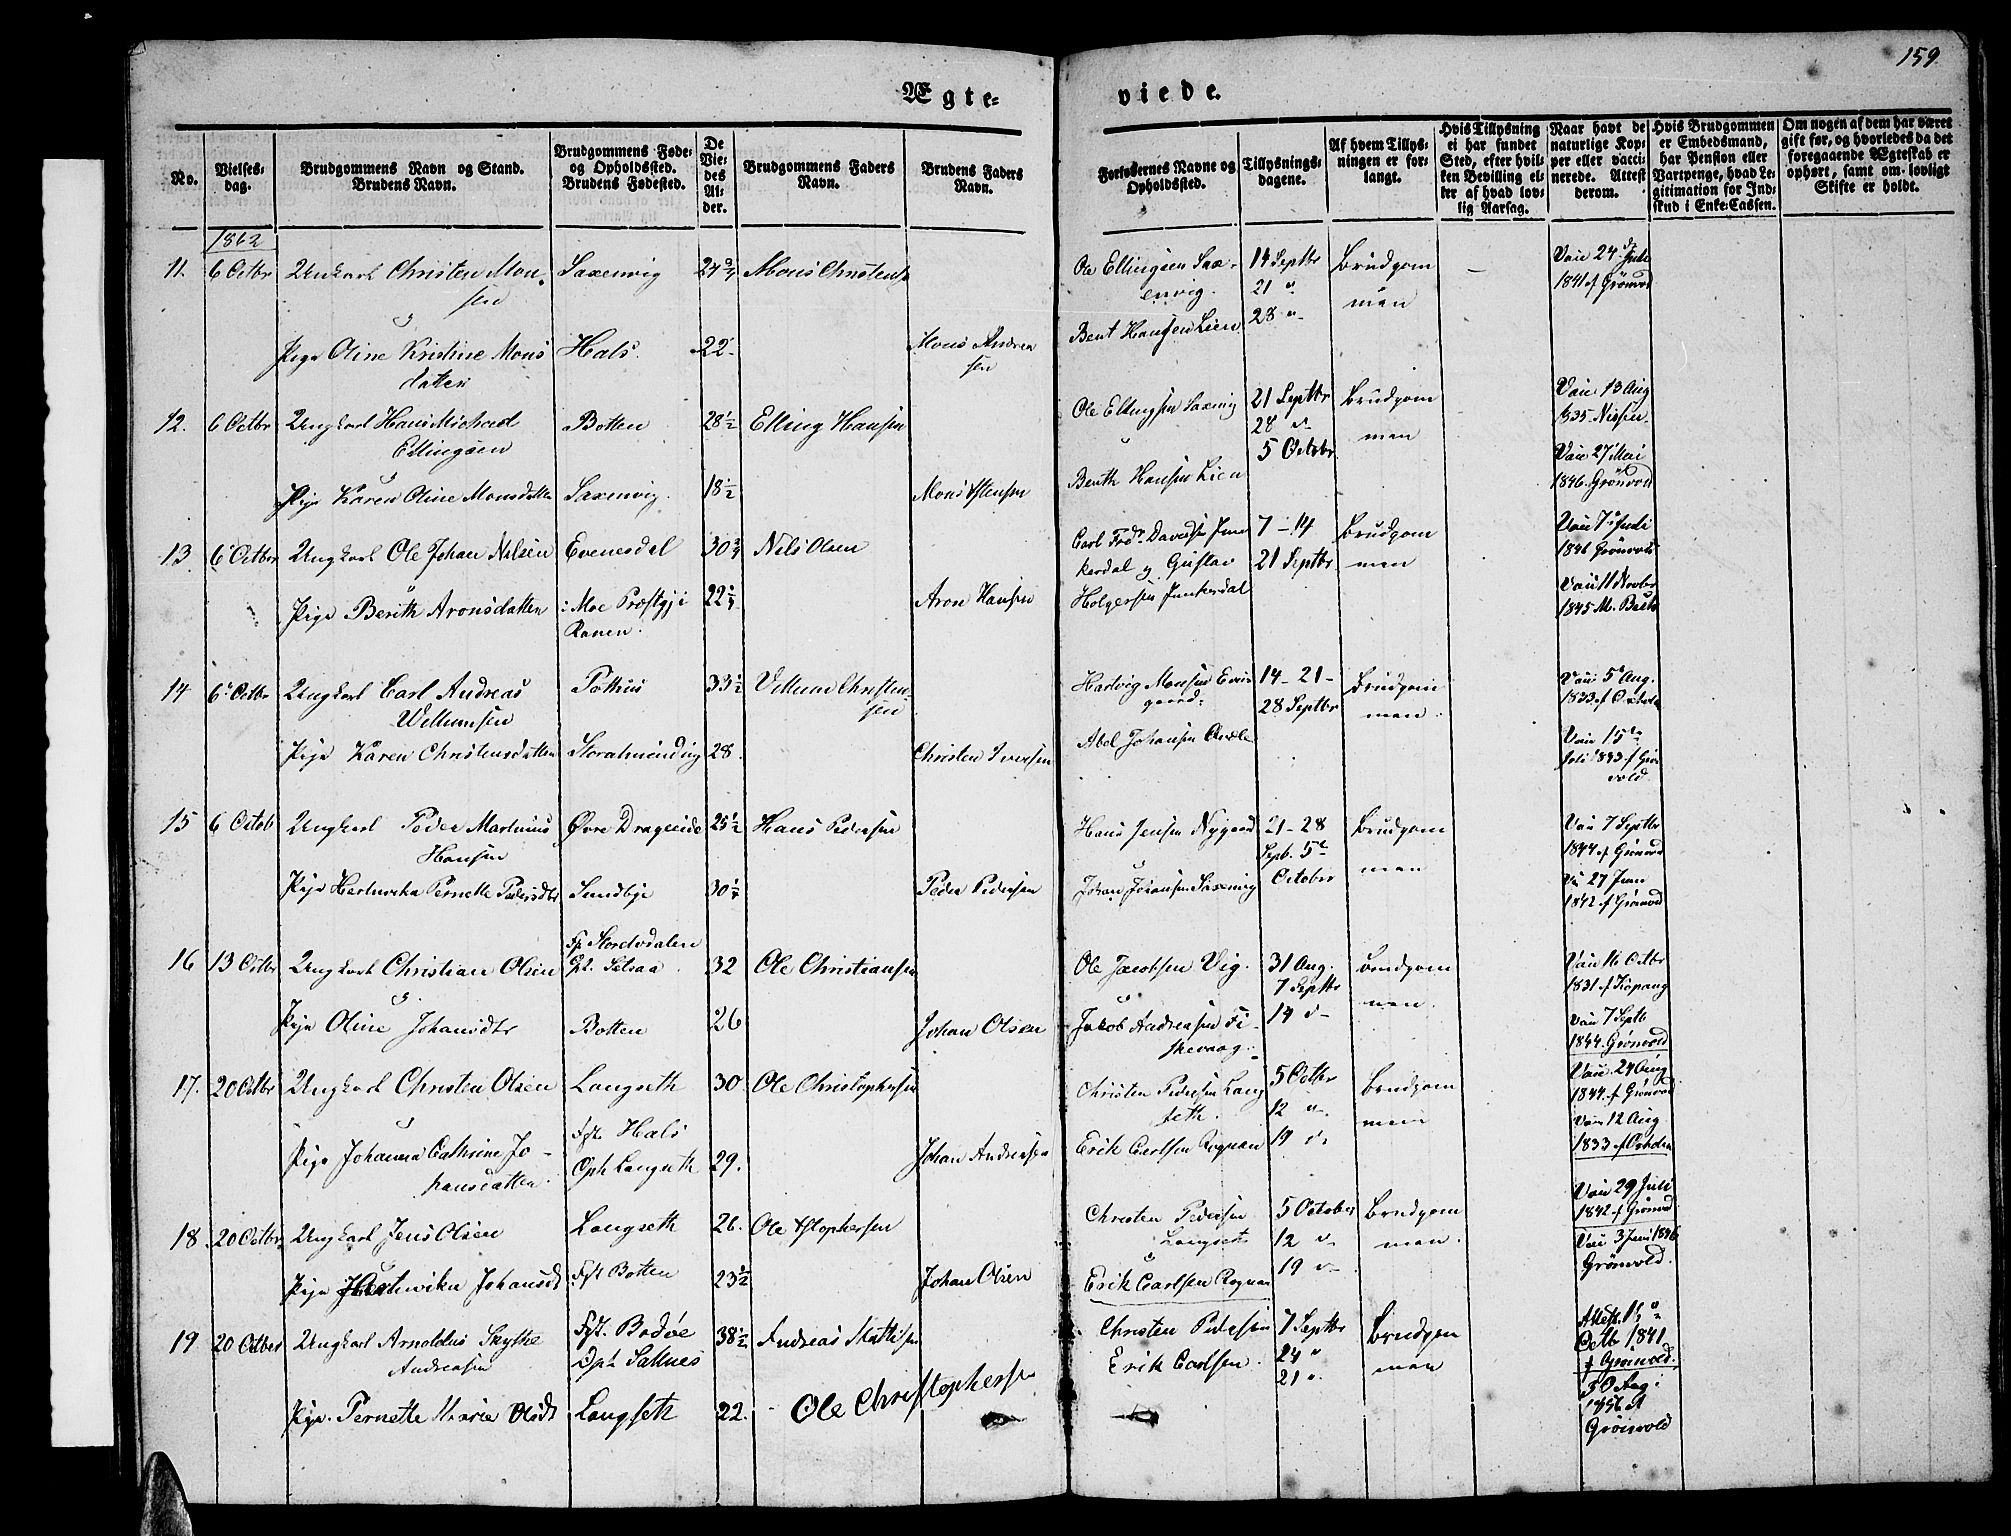 159
Ægte=
viede.
No.
Vielses-
dag.
Brudgommens Navn og Stand.
Brudens Navn.
Brudgommens Føde-
og Opholdssted.
Brudens Fødested.
De
Vie-
des
Al-
der.
Brudgommens Faders
Navn.
Brudens Faders
Navn.
Forlovernes Navne og
Opholdssted.
Tillysnings-
dagene.
Af hvem Tillys-
ningen er for-
langt.
Hvis Tillysning
ei har fundet
Sted, efter hvil-
ken Bevilling el-
ler af hvad lov-
lig Aarsag.
Naar havt de
naturlige Kop-
per eller vacci-
nerede. Attest
derom.
Hvis Brudgommen
er Embedsmand,
har Pension eller
Vartpenge, hvad Le-
gitimation for Ind-
skud i Enke-Cassen.
Om nogen af dem har været
gift før, og hvorledes da det
foregaaende Ægteskab er
ophørt, samt om lovligt
Skifte er holdt.
1862
11. 6 Octbr Ungkarl Christen Mon-
sen
Saxenvig 27 3/4 Mons Christens
Ole Ellingsen Sax-
envig.
14 Septbr
21 "
28 "
Brudgom
men
Vaci 24 Juli
1841 f Grönvold
Pige Oline Kristine Mons
datter
Hals. 22 Mons Andrea
sen
Bent Hansen Lien
12. 6 Octbr Ungkarl Hans Michael
Ellingsen
Botten 28 1/2 Elling Hansen
Ole Ellingsen Saxenvig
21 Septbr
28 "
5 Octobr
Brudgom
men
Vaci 13 Aug
1835 Nissen
Pige Karen Oline Monsdatter Saxenvig. 18 1/2 Mons
Benth Hansen Lien
Vaci 27 Mai
1846 Grönvold
13. 6 Octbr Ungkarl Ole Johan Nilsen Evenesdal 30 3/4 Nils Olsen
Carl Fred. Davidsen Jun
kerdal og Gustav
Holgersen Junkerdal
7 - 14
21 Septbr
Brudgom
men
Vaci 7 Juli
1846 Grönvold
Pige Berith Aronsdatter i Moe Præstgj i
Ranen.
22 1/4 Aron Hansen
Vaci 11 Novbr
1845 M.
14 6 Octbr Ungkarl Carl Andreas
Willumsen
Pothus 33 1/2 Villum Christen-
sen
Hartvig Monsen Evens
gaard.
14 - 21 -
28 Septbr
Brudgom
men.
Vaci 5 Aug.
1833 f
Pige Karen Christensdatter Storalmending 28 Christen Iversen
Abel Johansen
Vaci 15
Juli 1843 f Grön
vold
15 6 Octob Ungkarl Peder Martinus
Hansen
Øvre Drageeide 25 1/2 Hans Pedersen
Hans Jensen Nygaard
21 - 28
Sept. 5
October
Brudgom
men
Vaci 7 Septbr
1844 f Grönvold
Pige Hartvika Pernelle Pedersdtr Sundbye 30 1/4 Peder Pedersen
Johan Johansen Saxenvig
27 Juni
1842 f Grönvold
16 13 Octbr Ungkarl Christian Olsen Fp. Stordvdalen
Oph. Setsaa
32 Ole Christiansen
Ole Jacobsen Vig.
31 Aug.
7 Septbr
14 "
Brudgom
men.
Vaci 16 Octbr
1831 f
Pige Oline Johansdtr Botten 26 Johan Olsen
Jakob Andreasen Fi-
skevaag.
Vaci 7 Septb
1844 Grönvold
17. 20 Octbr Ungkarl Christen Olsen Langseth 30. Ole Christophersen
Christen Pedersen Lang
seth.
5 Octbr
12 "
19 "
Brudgom
men
Vaci 24 Aug
1844 f Grönvold
Pige Johanna Cathrine Jo-
hansdatter.
Fst. Hals
Oph Langseth
29. Johan Andreasen
Erik Carlsen Rognan
Vaci 12 Aug
1833 f
18 20 Octbr Ungkarl Jens Olsen Langseth 26. Ole Xstophersen
Christen Pedersen
Langset
5 October
12 "
19 "
Brudgom
men.
Vaci 29 Juli
1842 f Grönvold
Pige Hartvika Johansdt Fst Botten 23 1/2 Johan Olsen
Erik Carlsen Rognan
Vaci 3 Juni 1846
Grönvold.
19. 20 Octber Ungkarl Arnoldus Skytte
Andreasen
Fst. Bodøe
Oph Saltnes
38 1/2 Andreas Mathisen
Christen Pedersen
Erik Carlsen.
7 Septbr
24 "
21 "
Brudgom
men
Attest.
Octb 1841
f Grönvold.
Pige Pernelle Marie Olsdt Langseth 22. Ole Christophersen
30 Aug
Grönvold